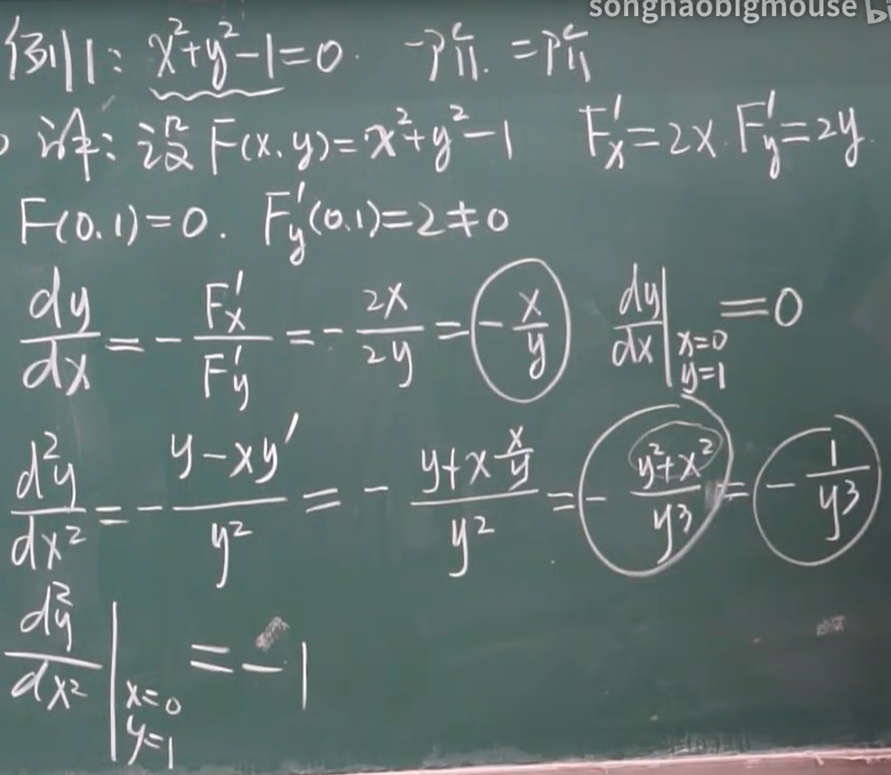 songhaobigmouse bi
例1: x²+y²-1=0. 一阶. 二阶
详: 设 F(x,y)=x²+y²-1 F'x=2x. F'y=2y.
F(0,1)=0. F'y(0,1)=2≠0
dy/dx = -F'x/F'y = -2x/2y = -x/y dy/dx|x=0 y=1 =0
d²y/dx² = -(y-xy')/y² = -(y+x x/y)/y² = -(y²+x²)/y³ = -1/y³
d²y/dx²|x=0 y=1 =-1